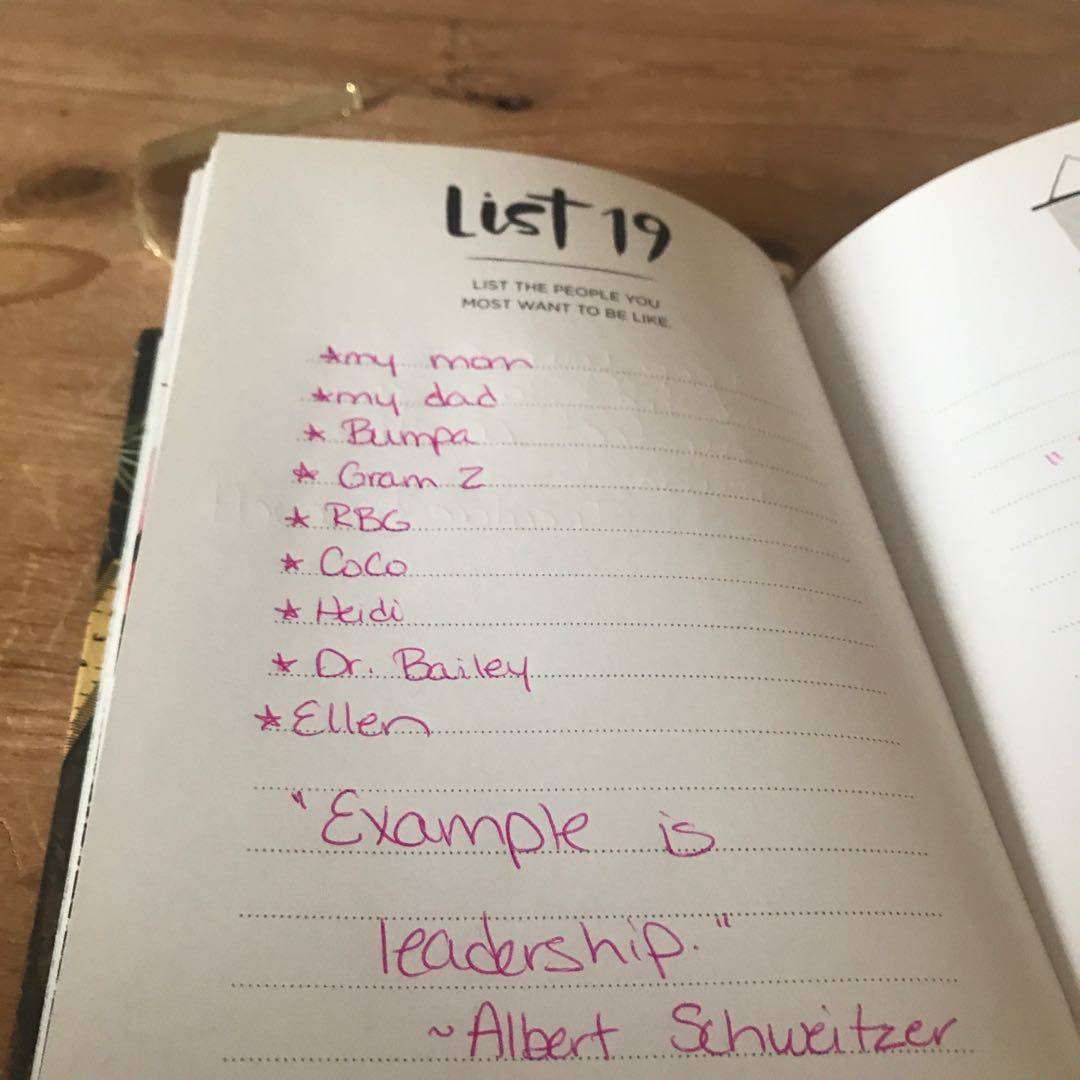 List 19
LIST THE PEOPLE YOU
MOST WANT TO BE LIKE.
*my mom
*my dad
* Bumpa
* Gram Z
* RBG
* CoCo
* Heidi
* Dr. Bailey
*Ellen
"Example is
leadership."
~Albert Schweitzer
"